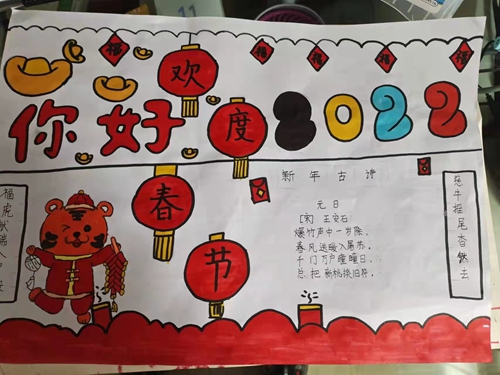 福
福
福
福
福
你好
2022
欢
度
春
节
新年古诗
元日
[宋] 王安石
爆竹声中一岁除，
春风送暖入屠苏，
千门万户曈曈日，
总把新桃换旧符。
福虎献瑞
牛摇尾杳然去